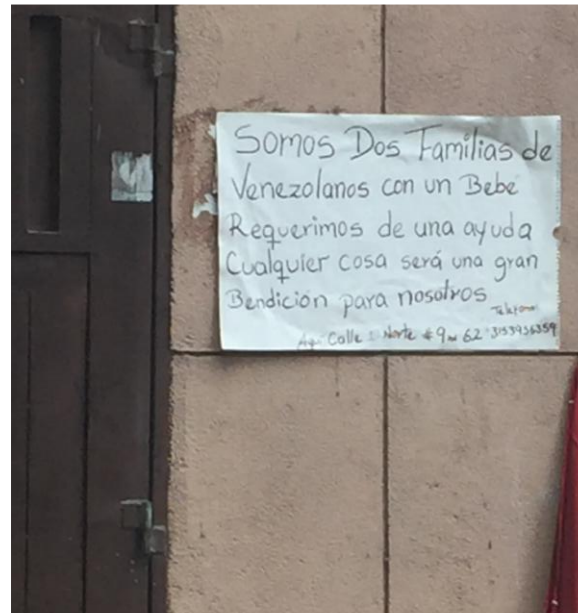 Somos Dos Familias de
Venezolanos con un Bebé
Requerimos de una ayuda
Cualquier cosa será una gran
Bendición para nosotros
Telefono
Calle : Norte # 9 62